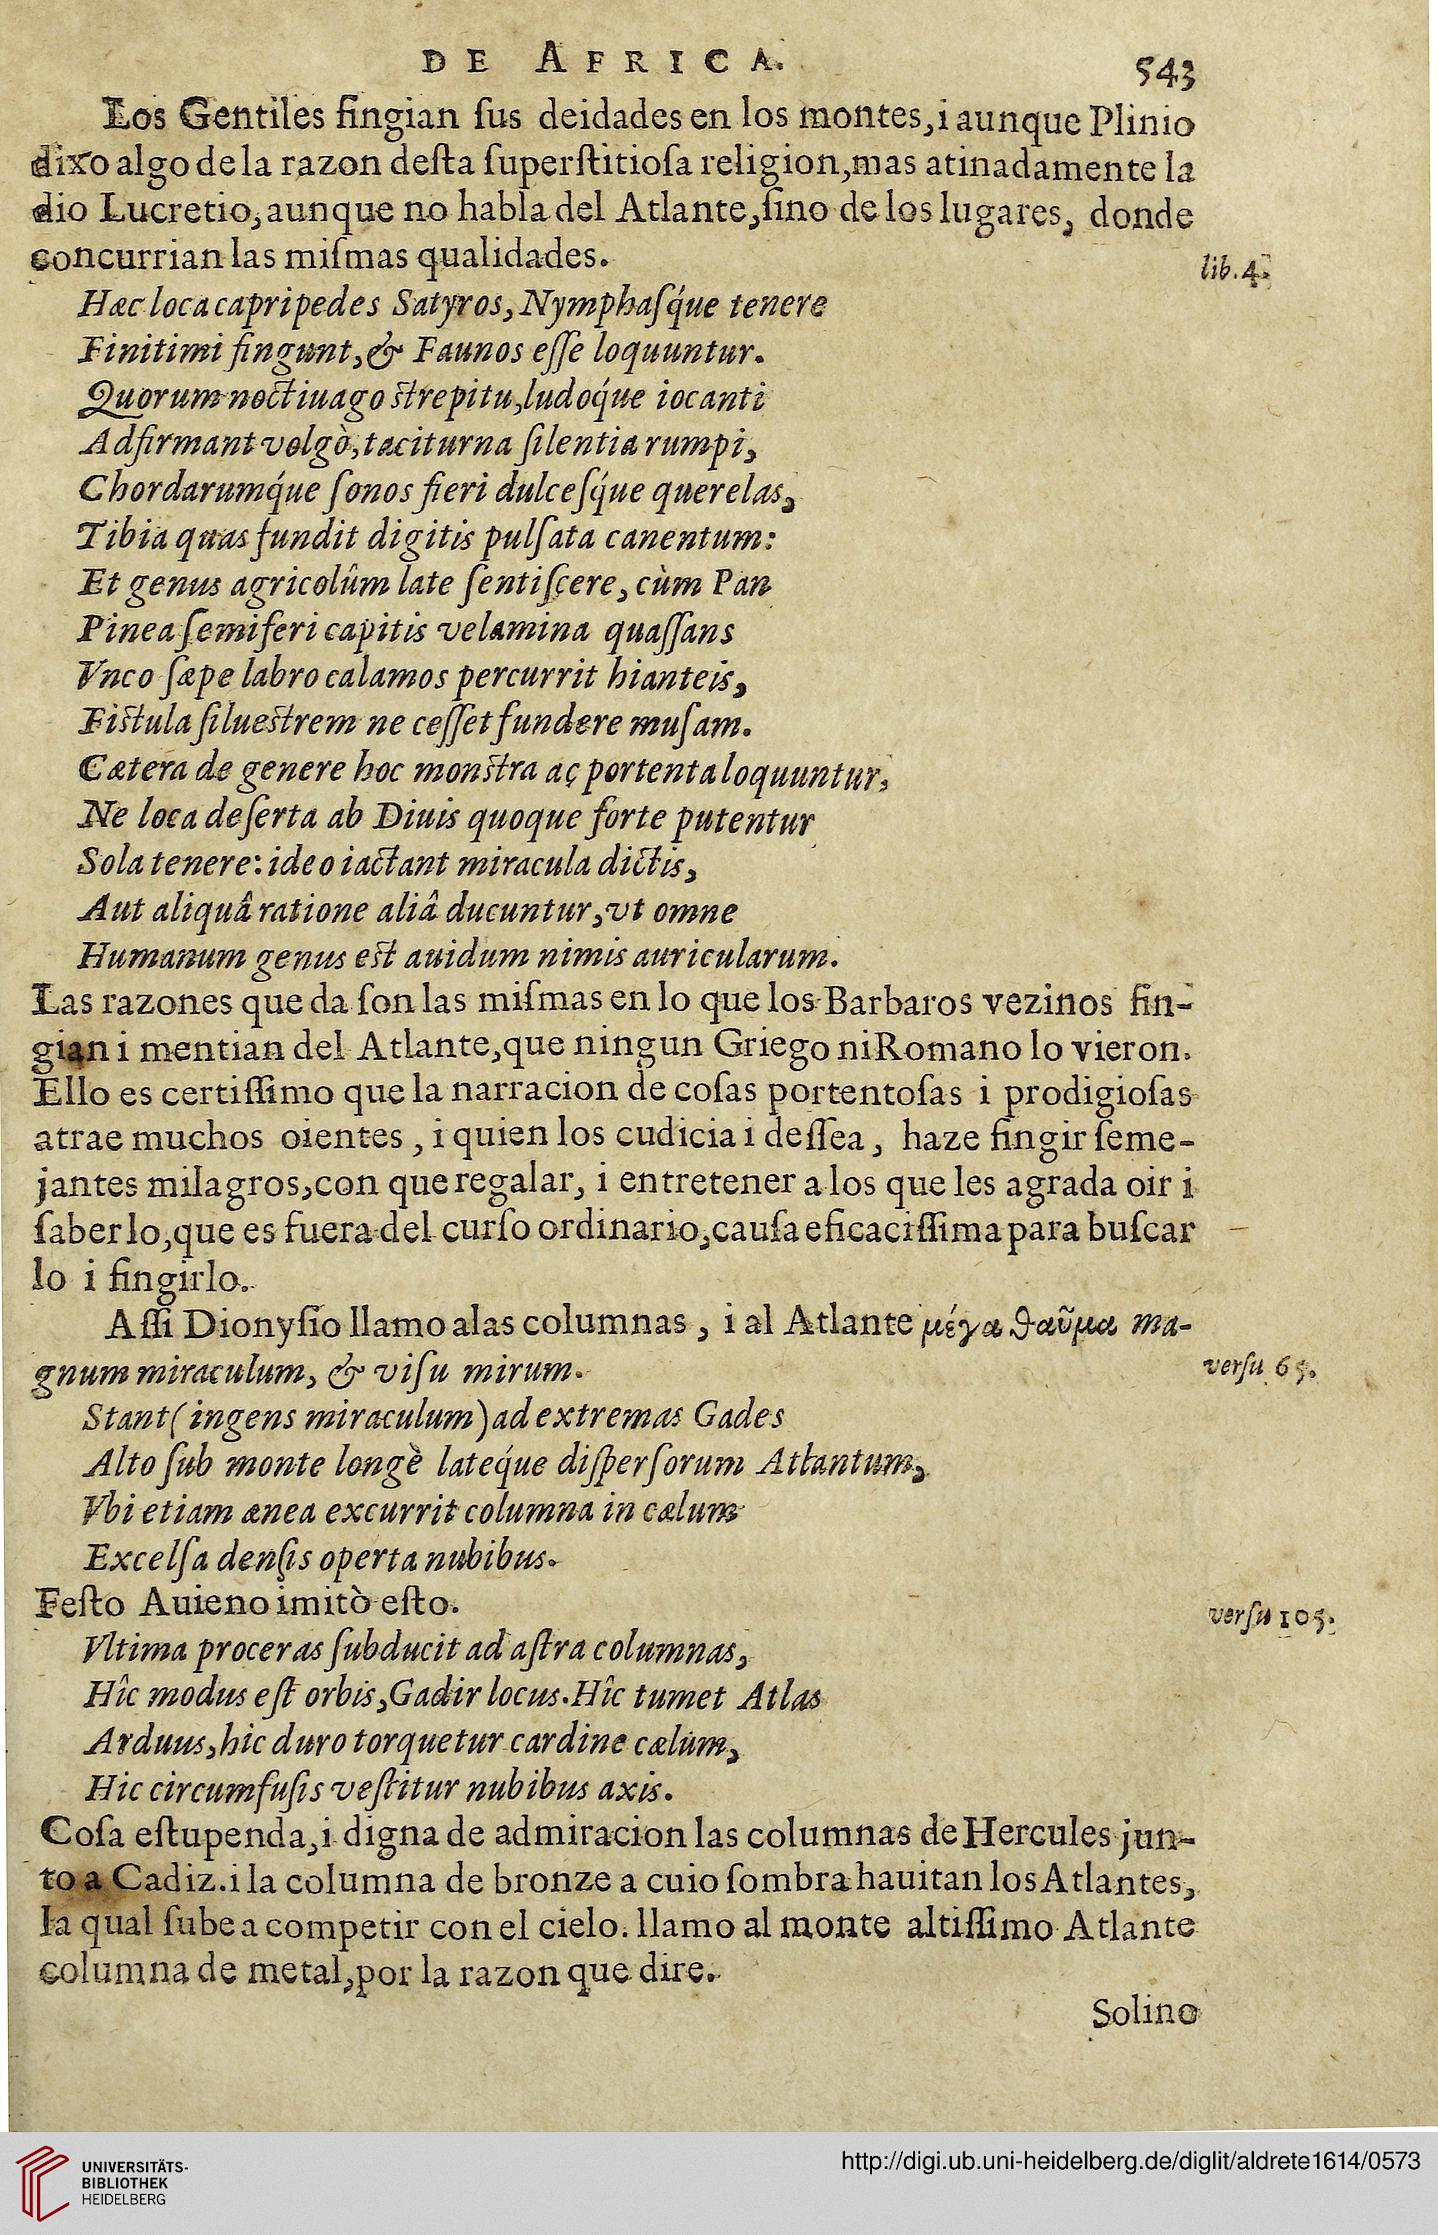 DE AFRICA.
543
Los Gentiles fingian ſus deidades en los montes, i aunque Plinio
dixo algo de la razon deſta ſuperſtitioſa religion, mas atinadamente la
dio Lucretio, aunque no habla del Atlante, ſino de los lugares, donde
concurrian las miſmas qualidades.
lib. 4.
Hæc loca capripedes Satyros, Nymphaſq́ue tenere
Finitimi fingunt, & Faunos eſſe loquuntur.
Quorum noctiuago strepitu, ludoq́ue iocanti
Adfirmant volgò, taciturna ſilentia rumpi,
Chordarumq́ue ſonos fieri dulceſq́ue querelas,
Tibia quas fundit digitis pulſata canentum:
Et genus agricolûm late ſentiſcere, cùm Pan
Pinea ſemiferi capitis velamina quaſſans
Vnco ſæpe labro calamos percurrit hianteis,
Fistula ſiluestrem ne ceſſet fundere muſam.
Cætera de genere hoc monstra ac portenta loquuntur,
Ne loca deſerta ab Diuis quoque forte putentur
Sola tenere: ideo iactant miracula dictis,
Aut aliquâ ratione aliâ ducuntur, vt omne
Humanum genus est auidum nimis auricularum.
Las razones que da ſon las miſmas en lo que los Barbaros vezinos fin-
gian i mentian del Atlante, que ningun Griego ni Romano lo vieron.
Ello es certiſſimo que la narracion de coſas portentoſas i prodigioſas
atrae muchos oientes, i quien los cudicia i deſſea, haze fingir ſeme-
jantes milagros, con que regalar, i entretener a los que les agrada oir i
ſaber lo, que es fuera del curſo ordinario, cauſa eficaciſſima para buſcar
lo i fingirlo.
Aſſi Dionyſio llamo alas columnas, i al Atlante μέγα θαῦμα ma-
gnum miraculum, & viſu mirum.
verſu 65.
Stant (ingens miraculum) ad extremas Gades
Alto ſub monte longè lateq́ue diſperſorum Atlantum,
Vbi etiam ænea excurrit columna in cælum
Excelſa denſis operta nubibus.
Feſto Auieno imitò eſto.
verſu 105.
Vltima proceras ſubducit ad aſtra columnas,
Hîc modus eſt orbis, Gadir locus. Hîc tumet Atlas
Arduus, hic duro torquetur cardine cælum,
Hic circumfuſis veſtitur nubibus axis.
Coſa eſtupenda, i digna de admiracion las columnas de Hercules jun-
to a Cadiz. i la columna de bronze a cuio ſombra hauitan los Atlantes,
la qual ſube a competir con el cielo. llamo al monte altiſſimo Atlante
columna de metal, por la razon que dire.
Solino
UNIVERSITÄTS-
BIBLIOTHEK
HEIDELBERG
http://digi.ub.uni-heidelberg.de/diglit/aldrete1614/0573